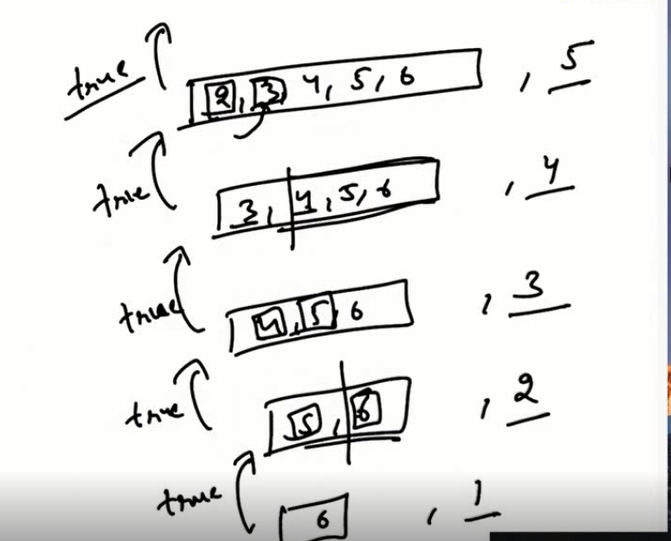 true 2, 3, 4, 5, 6 , 5
true 3, 4, 5, 6 , 4
true 4, 5, 6 , 3
true 5, 6 , 2
true 6 , 1